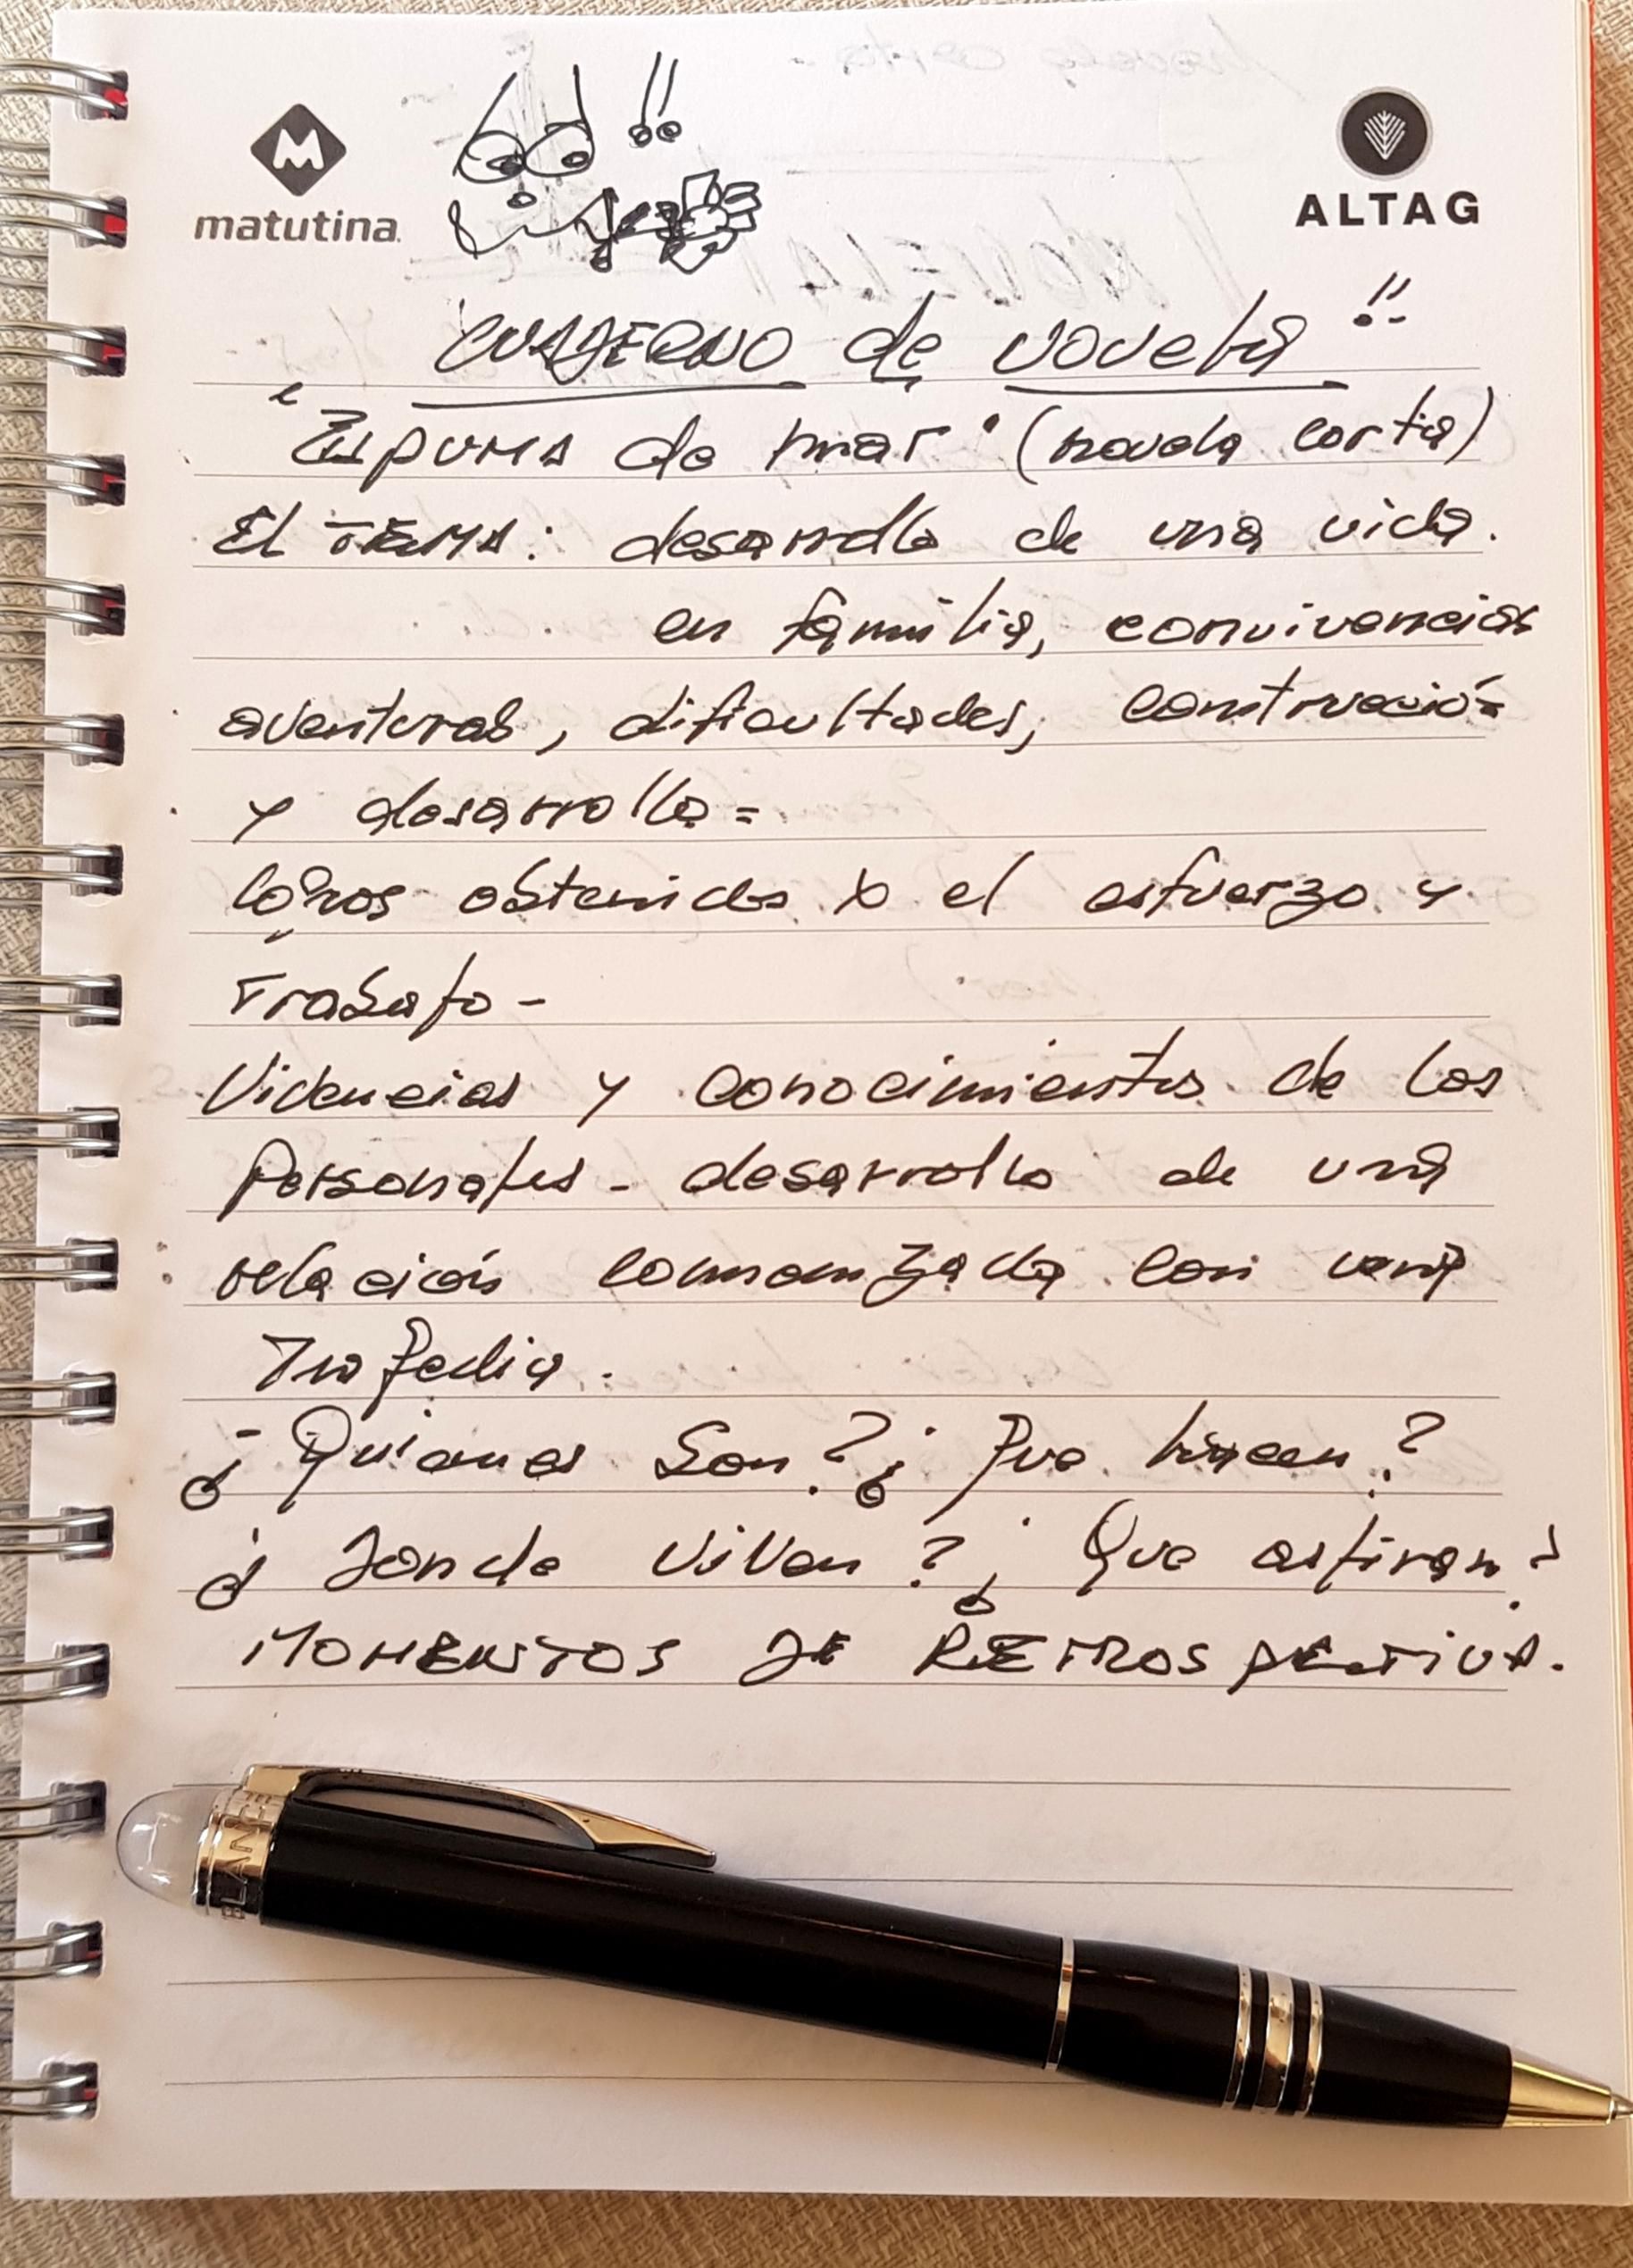 matutina
ALTAG
!!
CUADERNO de novela !!
"Espuma de mar" (novela corta)
El TEMA: desarrollo de una vida.
en familia, convivencias
aventuras, dificultades, construcción
y desarrollo =
logros obtenidos x el esfuerzo y
Trabajo -
Vivencias y conocimientos de los
Personajes - desarrollo de una
relación comenzada con una
Tragedia.
¿Quienes Son? ¿Que hacen?
¿Donde Viven? ¿Que aspiran?
MOMENTOS DE RETROSPECTIVA.
BLANC